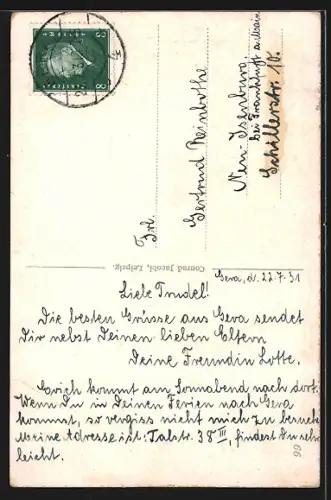 Frl.
Gertrud Reinbothe
Neu-Isenburg
bei Frankfurt a. Main
Schillerstr. 10.
Conrad Jacobi, Leipzig.
Gera, d. 22.7.31
Liebe Trudel!
Die besten Grüsse aus Gera sendet
Dir nebst Deinen lieben Eltern
Deine Freundin Lotte.
Erich kommt am Sonnabend nach dort.
Wenn Du in Deinen Ferien nach Gera
kommst, so vergiss nicht mich zu besuchen
Meine Adresse ist: Talstr. 38 III, findest Du sehr
leicht.
8 8
66